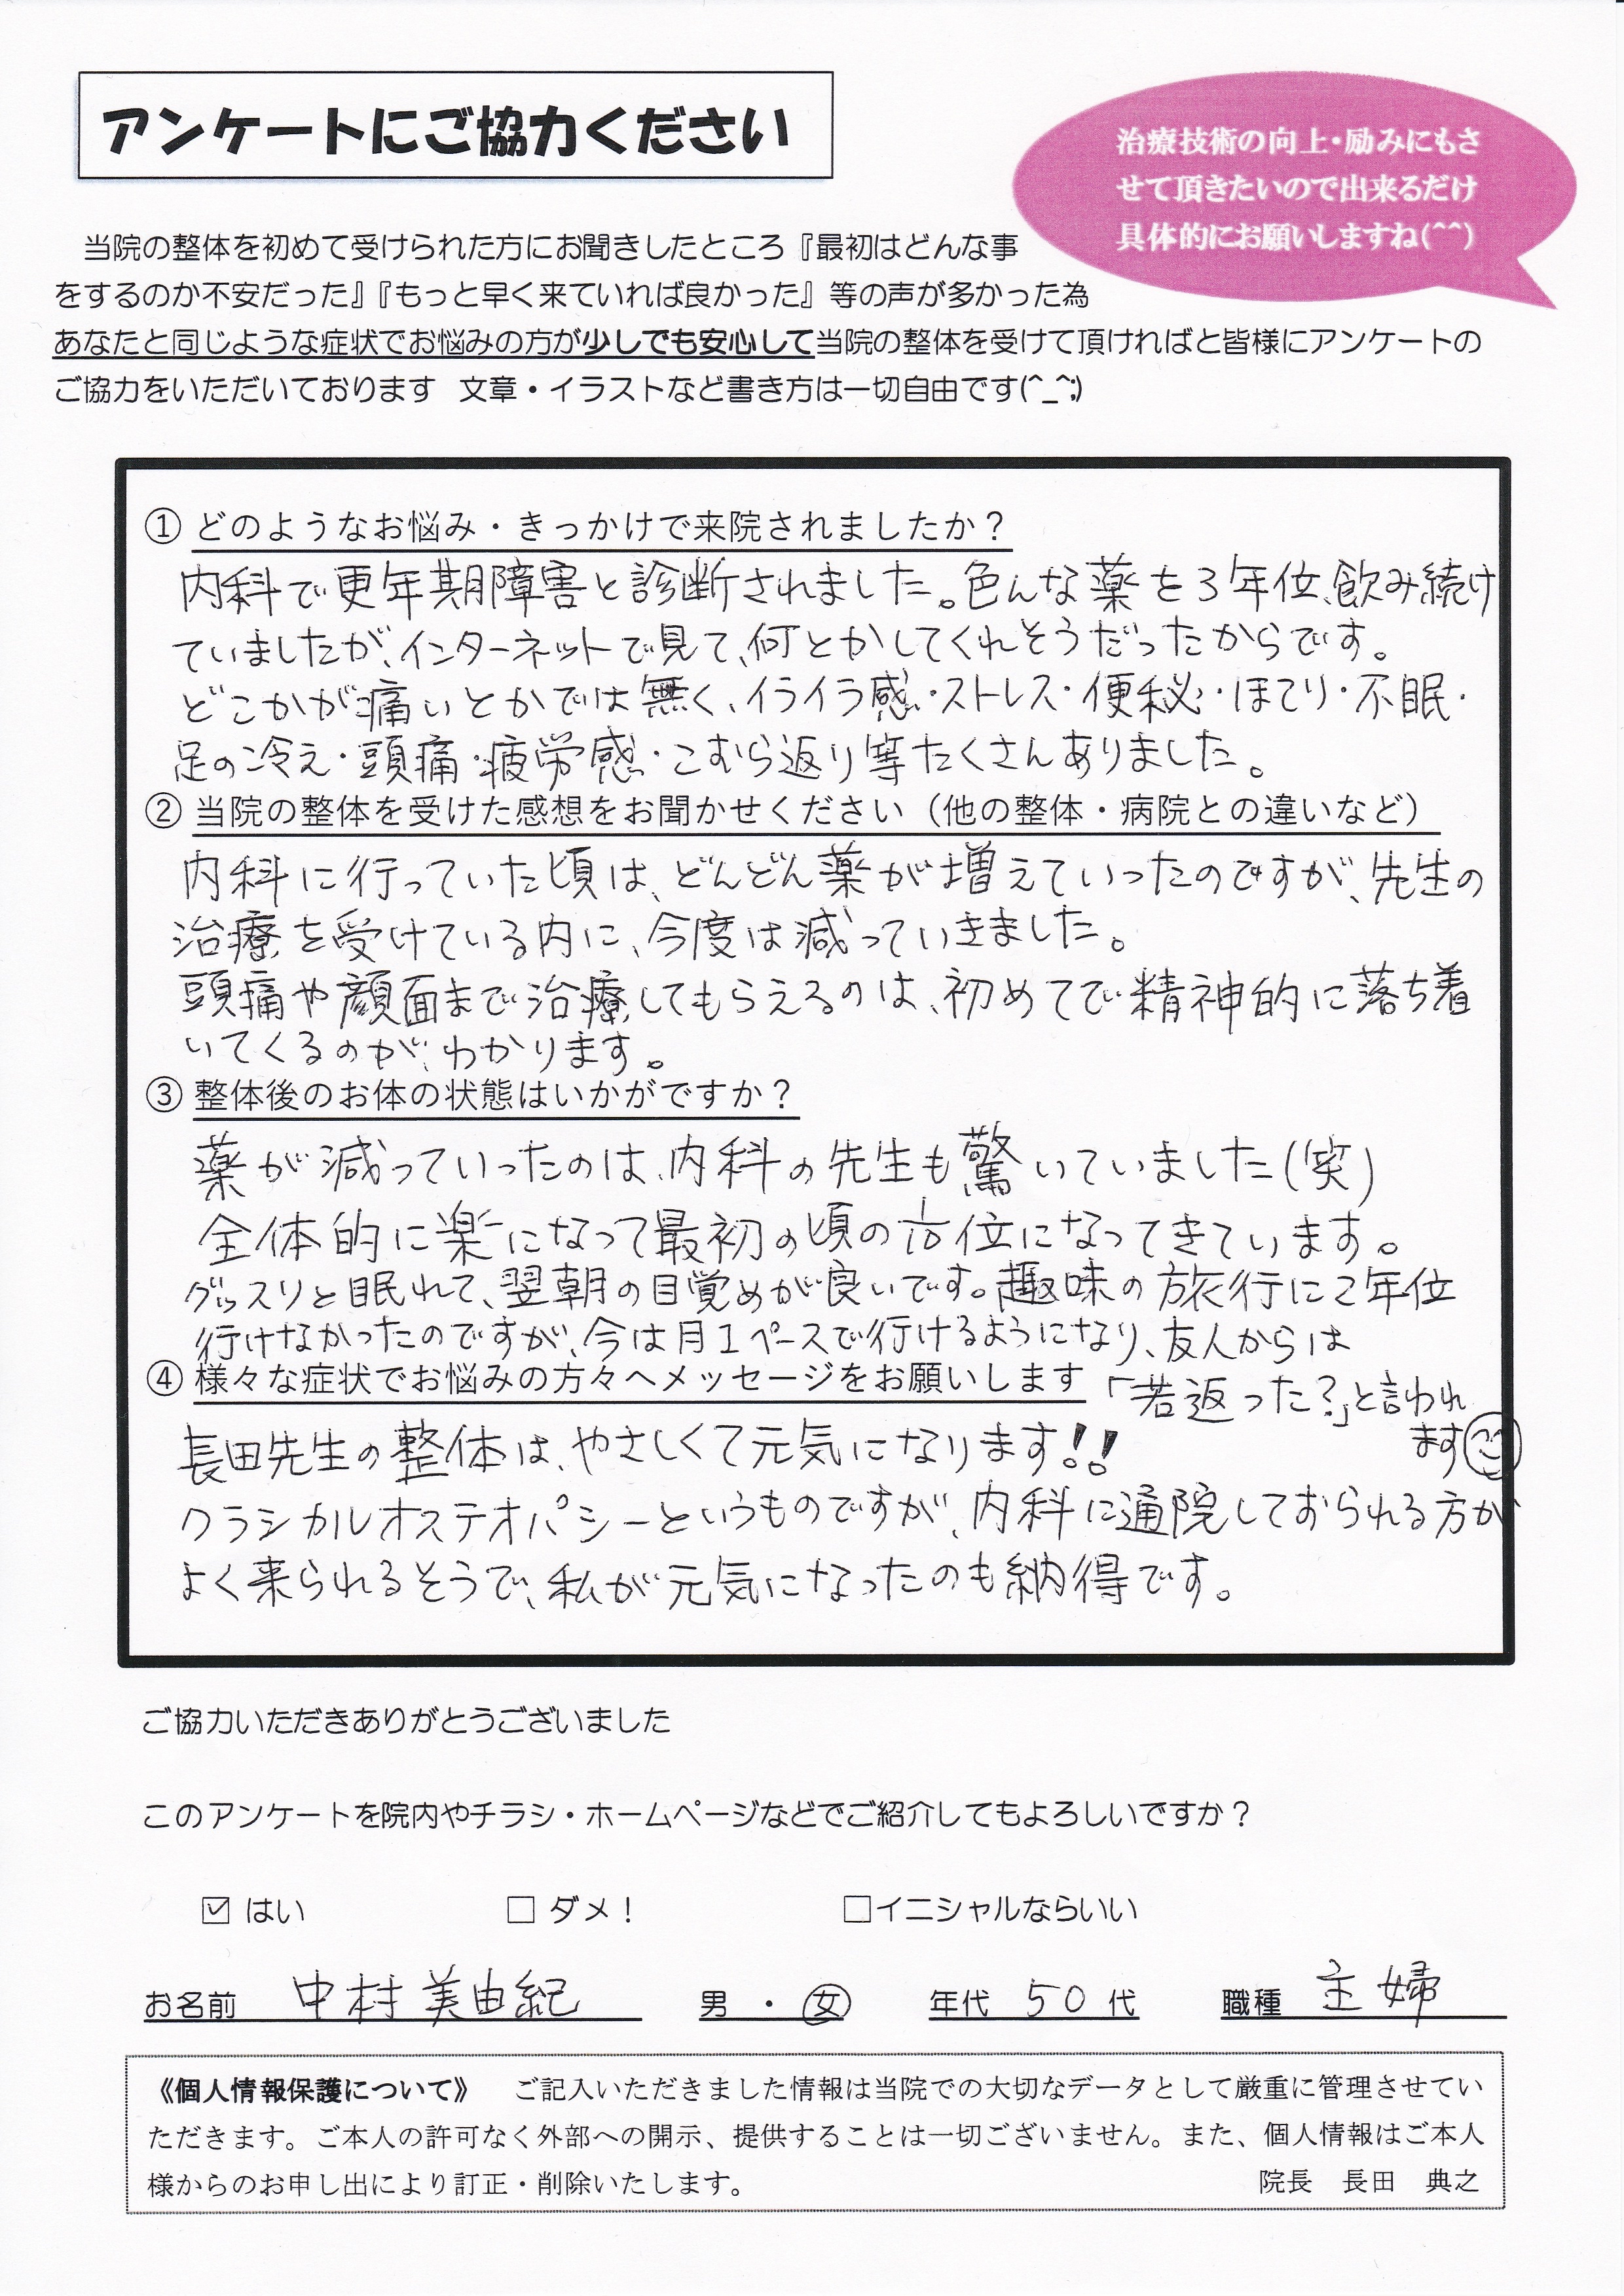 アンケートにご協力ください
治療技術の向上・励みにもさ
せて頂きたいので出来るだけ
具体的にお願いしますね(^^)
当院の整体を初めて受けられた方にお聞きしたところ『最初はどんな事
をするのか不安だった』『もっと早く来ていれば良かった』等の声が多かった為
あなたと同じような症状でお悩みの方が少しでも安心して当院の整体を受けて頂ければと皆様にアンケートの
ご協力をいただいております 文章・イラストなど書き方は一切自由です(^_^;)
① どのようなお悩み・きっかけで来院されましたか？
内科で更年期障害と診断されました。色んな薬を３年位、飲み続け
ていましたが、インターネットで見て、何とかしてくれそうだったからです。
どこかが痛いとかでは無く、イライラ感・ストレス・便秘・ほてり・不眠・
足の冷え・頭痛・疲労感・こむら返り等たくさんありました。
② 当院の整体を受けた感想をお聞かせください（他の整体・病院との違いなど）
内科に行っていた頃は、どんどん薬が増えていったのですが、先生の
治療を受けている内に、今度は減っていきました。
頭痛や顔面まで治療してもらえるのは、初めてで精神的に落ち着
いてくるのが、わかります。
③ 整体後のお体の状態はいかがですか？
薬が減っていったのは、内科の先生も驚いていました(笑)
全体的に楽になって最初の頃の1/10位になってきています。
グッスリと眠れて、翌朝の目覚めが良いです。趣味の旅行に２年位
行けなかったのですが、今は月１ペースで行けるようになり、友人からは
「若返った？」と言われ
ます
④ 様々な症状でお悩みの方々へメッセージをお願いします
長田先生の整体は、やさしくて元気になります!!
クラシカルオステオパシーというものですが、内科に通院しておられる方が
よく来られるそうで、私が元気になったのも納得です。
ご協力いただきありがとうございました
このアンケートを院内やチラシ・ホームページなどでご紹介してもよろしいですか？
☑ はい □ ダメ！ □イニシャルならいい
お名前 中村美由紀 男 ・ 女 年代 50 代 職種 主婦
《個人情報保護について》 ご記入いただきました情報は当院での大切なデータとして厳重に管理させてい
ただきます。ご本人の許可なく外部への開示、提供することは一切ございません。また、個人情報はご本人
様からのお申し出により訂正・削除いたします。 院長 長田 典之